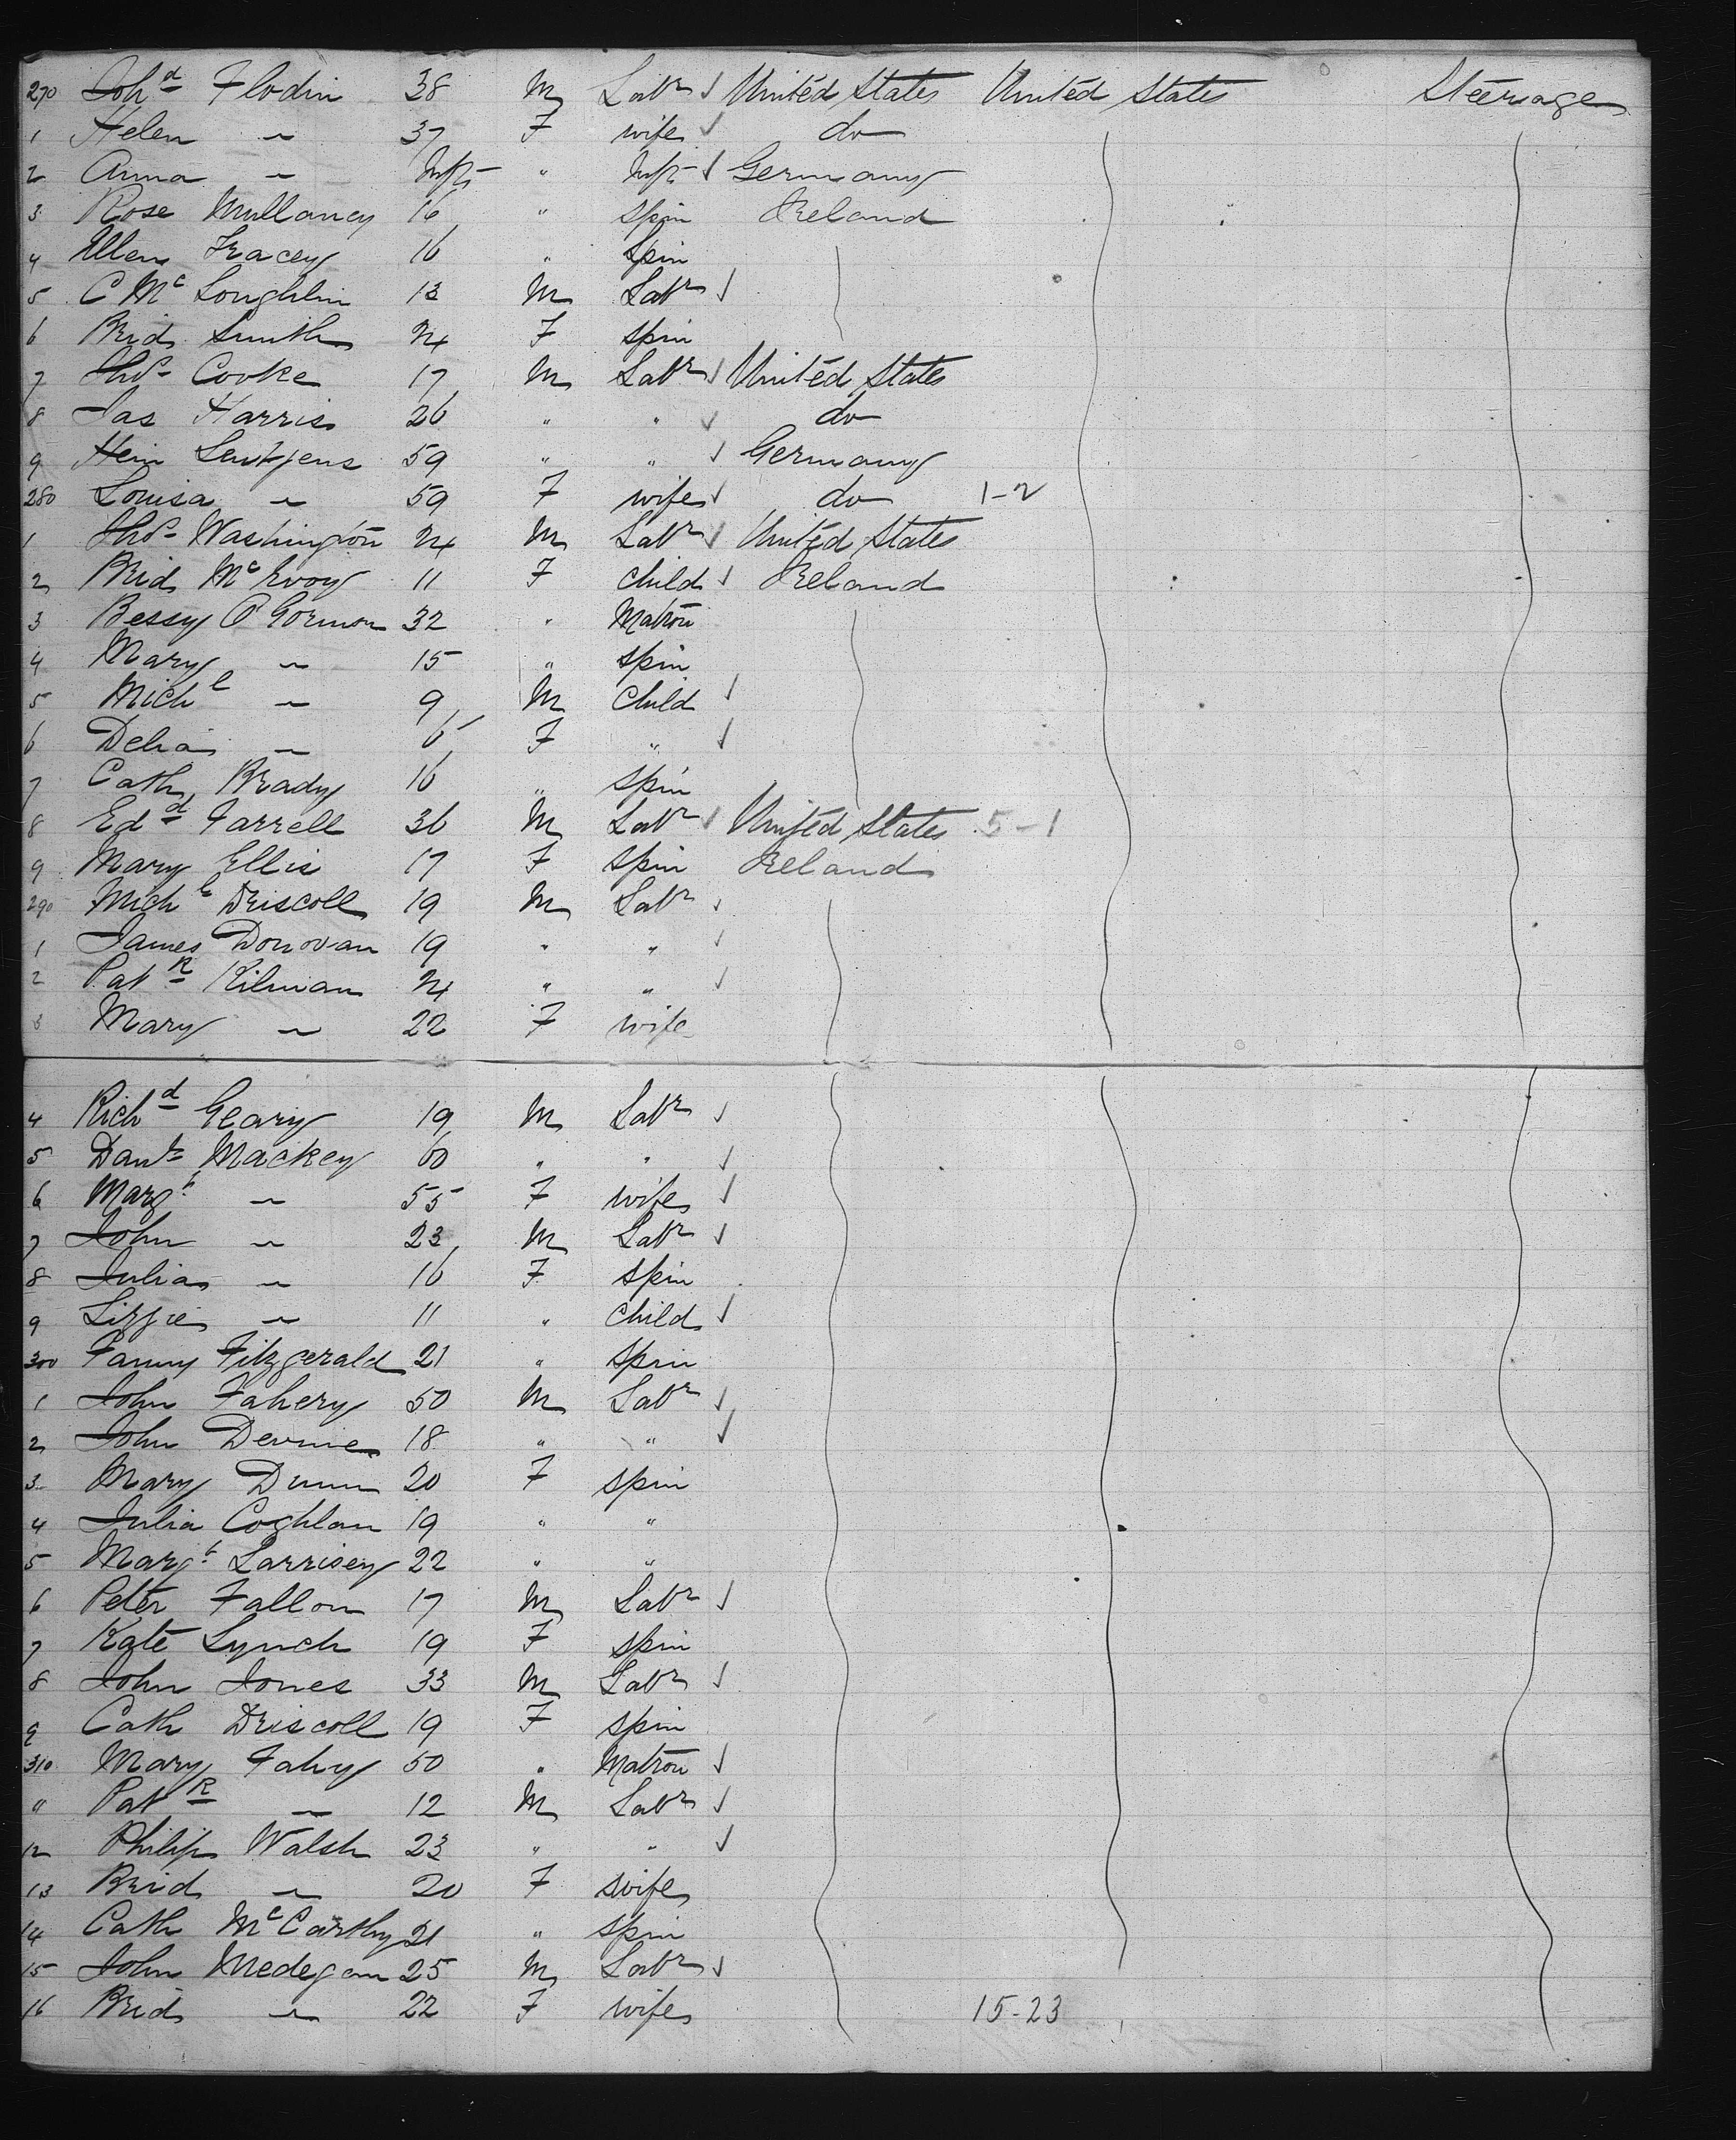 270 Joh^d Flodin 38 M Labr ✓ United States United States Steerage
1 Helen " 37 F wife ✓ do
2 Anna " Inft " Inft ✓ Germany
3 Rose Mullaney 16 " spin Ireland
4 Ellen Tracey 16 " Spin
5 C McLoughlin 13 M Labr ✓
6 Brid Smith 24 F spin
7 Thos Cooke 17 M Labr ✓ United States
8 Jas Harris 26 " " ✓ do
9 Hein Lentjens 59 " " ✓ Germany
280 Louisa " 59 F wife ✓ do 1-2
1 Thos Washington 24 M Labr ✓ United States
2 Brid McEvoy 11 F child ✓ Ireland
3 Bessy O'Gorman 32 " Matron
4 Mary " 15 " spin
5 Michl " 9 M Child ✓
6 Delia " 6 F " ✓
7 Cath Brady 16 " spin
8 Edd Farrell 36 M Labr ✓ United States 5-1
9 Mary Ellis 17 F spin Ireland
290 Michl Driscoll 19 M Labr ✓
1 James Donovan 19 " " ✓
2 Patk Kilman 24 " " ✓
3 Mary " 22 F wife
4 Richd Geary 19 M Labr ✓
5 Danl Mackey 60 " " ✓
6 Margt " 55 F wife ✓
7 John " 23 M Labr ✓
8 Julia " 16 F spin
9 Lizzie " 11 " child ✓
300 Fanny Fitzgerald 21 " spin
1 John Fahery 50 M Labr ✓
2 John Devine 18 " " ✓
3 Mary Dunn 20 F spin
4 Julia Coghlan 19 " "
5 Margt Larrisey 22 " "
6 Peter Fallon 17 M Labr ✓
7 Kate Lynch 19 F spin
8 John Jones 33 M Labr ✓
9 Cath Driscoll 19 F spin
310 Mary Fahy 50 " Matron ✓
11 Patk " 12 M Labr ✓
12 Philip Walsh 23 " " ✓
13 Brid " 20 F wife
14 Cath McCarthy 21 " spin
15 John Medegan 25 M Labr ✓
16 Brid " 22 F wife 15-23